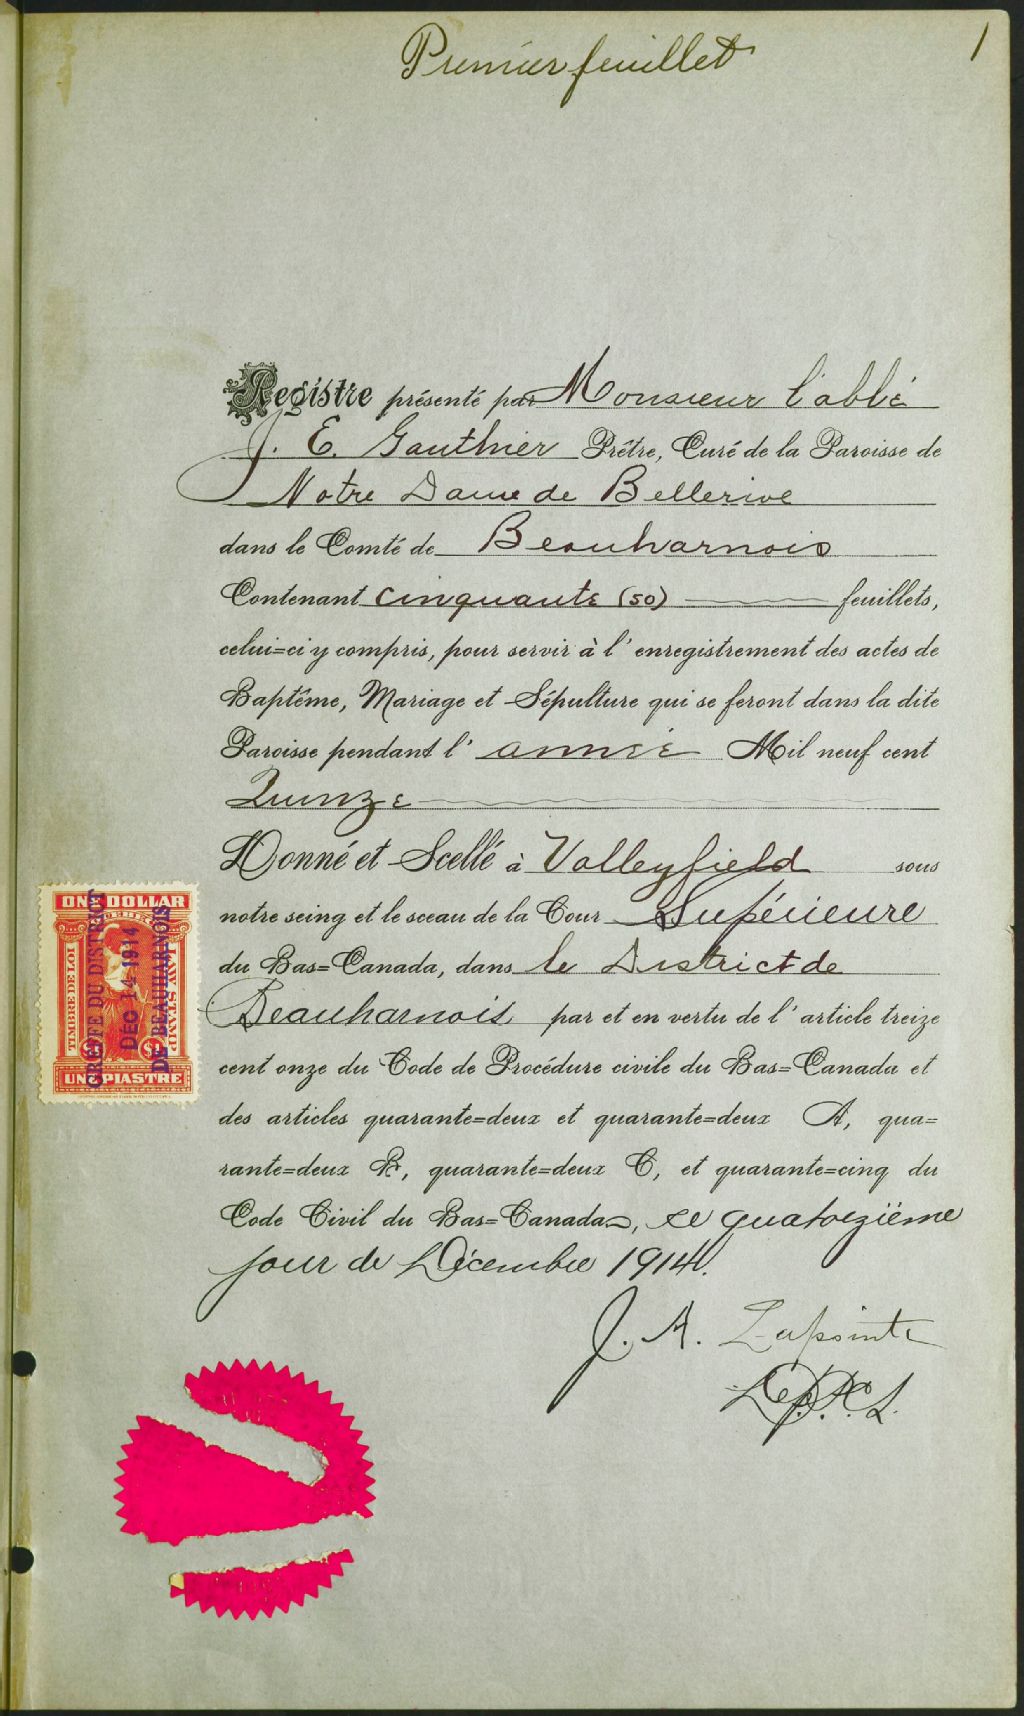 Premier feuillet
1
Registre présenté par Monsieur l'abbé
J. E. Gauthier Prêtre, Curé de la Paroisse de
Notre Dame de Bellerive
dans le Comté de Beauharnois
Contenant cinquante (50) feuillets,
celui=ci y compris, pour servir à l'enregistrement des actes de
Baptême, Mariage et Sépulture qui se feront dans la dite
Paroisse pendant l'année Mil neuf cent
Quinze
Donné et Scellé à Valleyfield sous
notre seing et le sceau de la Cour Supérieure
du Bas=Canada, dans le District de
Beauharnois par et en vertu de l'article treize
cent onze du Code de Procédure civile du Bas=Canada et
des articles quarante=deux et quarante=deux A, qua=
rante=deux B, quarante=deux C, et quarante=cinq du
Code Civil du Bas=Canada, ce quatorzième
jour de Décembre 1914.
J. A. Lapointe
ONE DOLLAR
TIMBRE DE LOI
LAW STAMP
$1
UNE PIASTRE
GREFFE DU DISTRICT
DEC 14 1914
DE BEAUHARNOIS